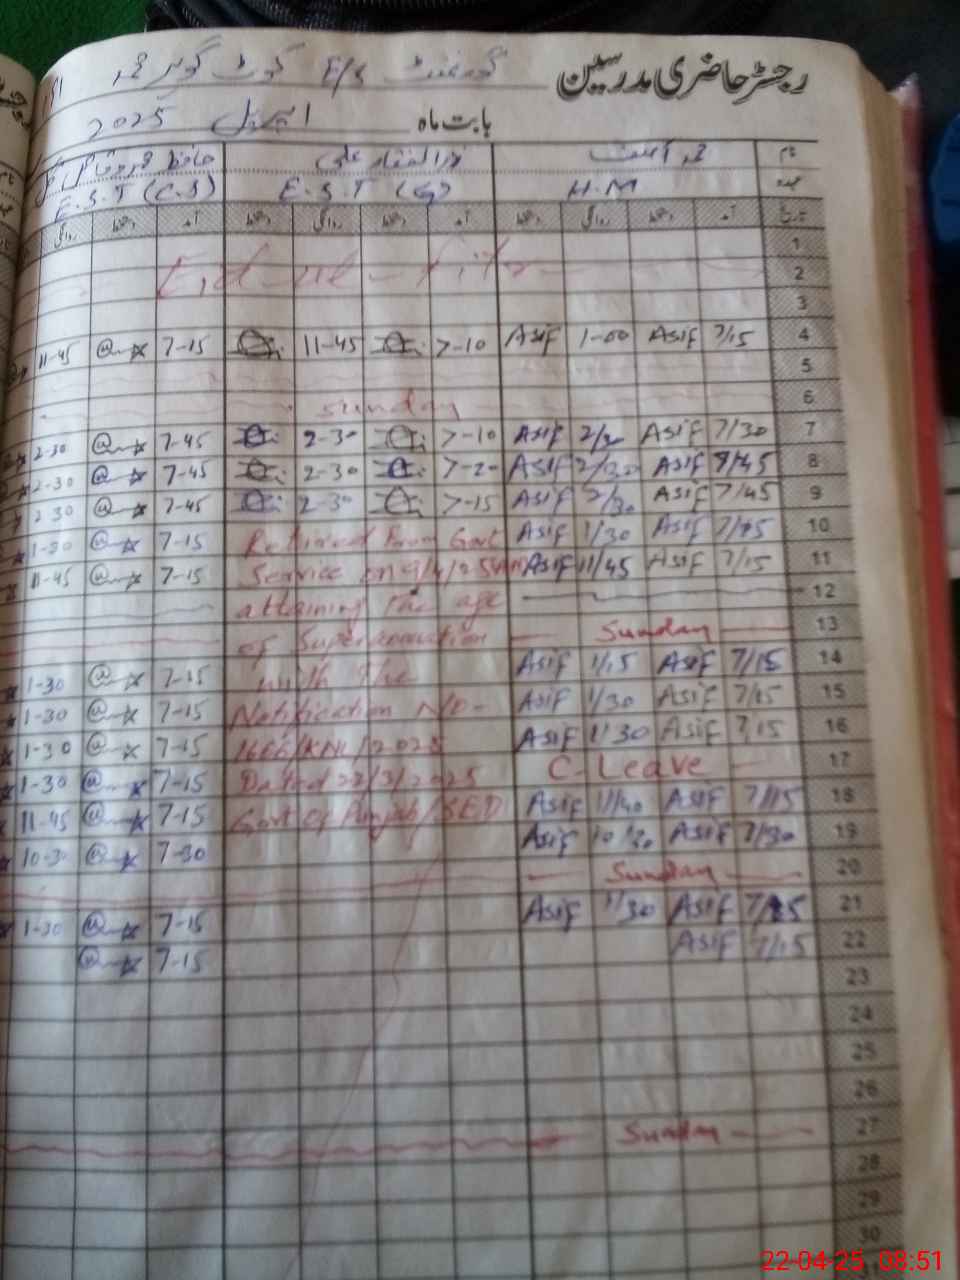 رجسٹر حاضری مدرسین گورنمنٹ E/S کوٹ
بابت ماہ اپریل 2025
نام محمد آصف ذوالفقار علی حافظ
عہدہ H.M E.S.T E.S.T (C.S)
تاریخ آمد دستخط روانگی دستخط آمد دستخط روانگی دستخط آمد دستخط روانگی
1
2 Eid-ul-fitr
3
4 7/15 Asif 1-00 Asif 7-10 11-45 7-15 11-45
5
6 Sunday
7 7/30 Asif 2/30 Asif 7-10 2-30 7-45 2-30
8 7/45 Asif 2/30 Asif 7-20 2-30 7-45 2-30
9 7/45 Asif 2/30 Asif 7-15 2-30 7-45 2-30
10 7/15 Asif 1/30 Asif Retired from Govt 7-15 1-30
11 7/15 Asif 11/45 Asif Service on 9/4/25 7-15 11-45
12 attaining the age
13 Sunday of Superannuation
14 7/15 Asif 1/15 Asif with the 7-15 1-30
15 7/15 Asif 1/30 Asif Notification NO- 7-15 1-30
16 7/15 Asif 1/30 Asif 1666/KNL/2025 7-15 1-30
17 C-Leave Dated 22/3/2025 7-15 1-30
18 7/15 Asif 11/40 Asif Govt of Punjab/SED 7-15 11-45
19 7/30 Asif 10/30 Asif 7-30 10-30
20 Sunday
21 7/15 Asif 1/30 Asif 7-15 1-30
22 7/15 Asif 7-15
23
24
25
26
27 Sunday
28
29
30
22-04-25 08:51